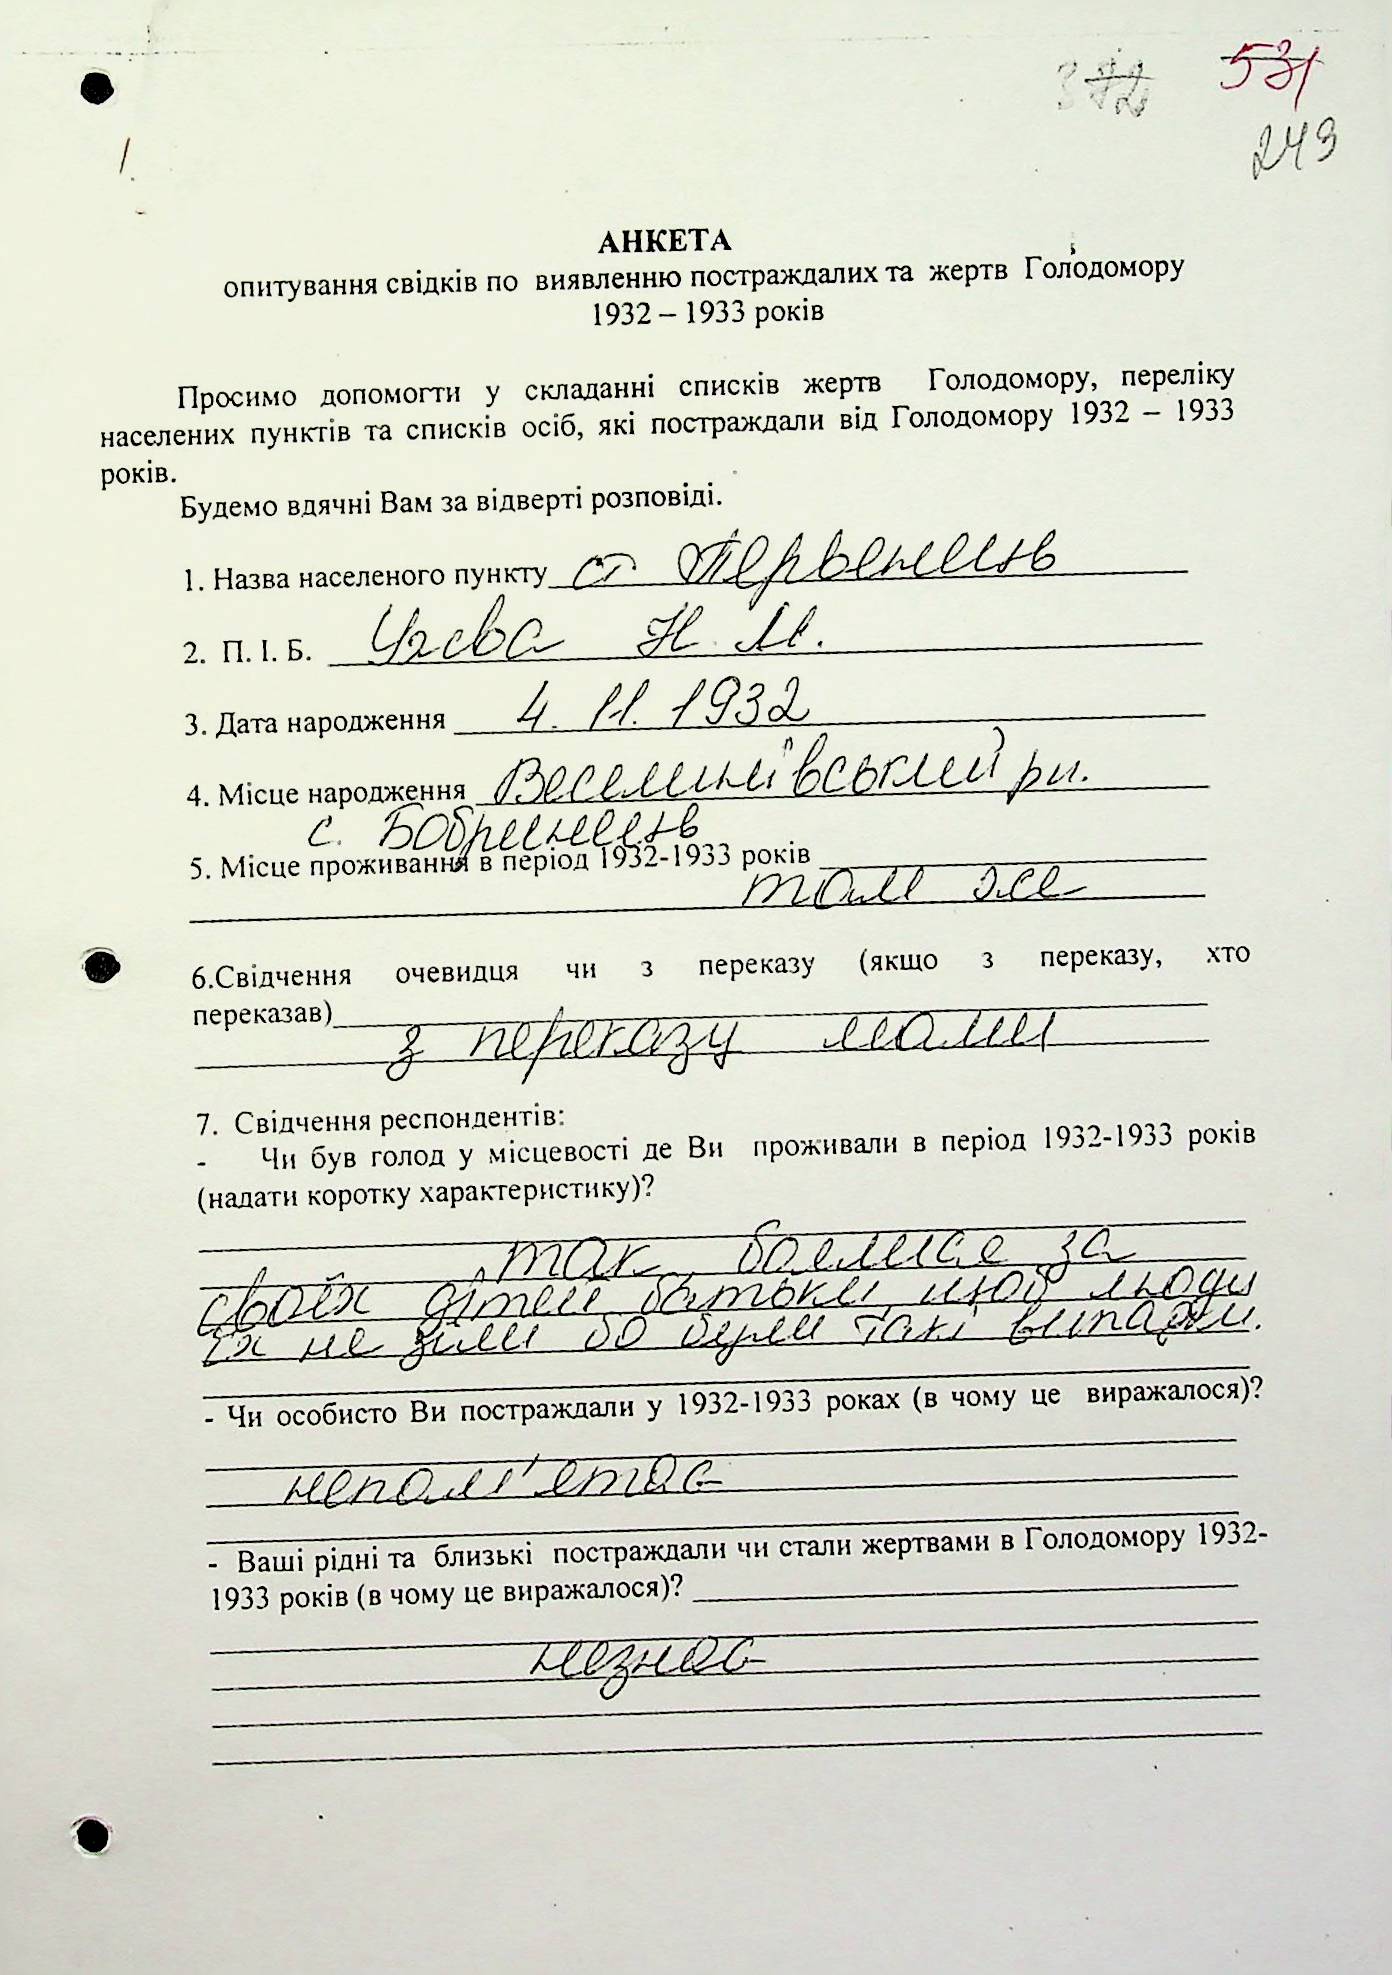 372 531
249
1.
АНКЕТА
опитування свідків по виявленню постраждалих та жертв Голодомору
1932 – 1933 років
Просимо допомогти у складанні списків жертв Голодомору, переліку
населених пунктів та списків осіб, які постраждали від Голодомору 1932 – 1933
років.
Будемо вдячні Вам за відверті розповіді.
1. Назва населеного пункту ст Первенець
2. П. І. Б. Н. М.
3. Дата народження 4. 11. 1932
4. Місце народження Веселинівський рн.
с. Бобринець
5. Місце проживання в період 1932-1933 років
там же
6.Свідчення очевидця чи з переказу (якщо з переказу, хто
переказав)
з переказу мами
7. Свідчення респондентів:
- Чи був голод у місцевості де Ви проживали в період 1932-1933 років
(надати коротку характеристику)?
так боялися за
своїх дітей батьки, щоб люди
їх не зїли бо були такі випадки.
- Чи особисто Ви постраждали у 1932-1933 роках (в чому це виражалося)?
непам'ятає
- Ваші рідні та близькі постраждали чи стали жертвами в Голодомору 1932-
1933 років (в чому це виражалося)?
незнає